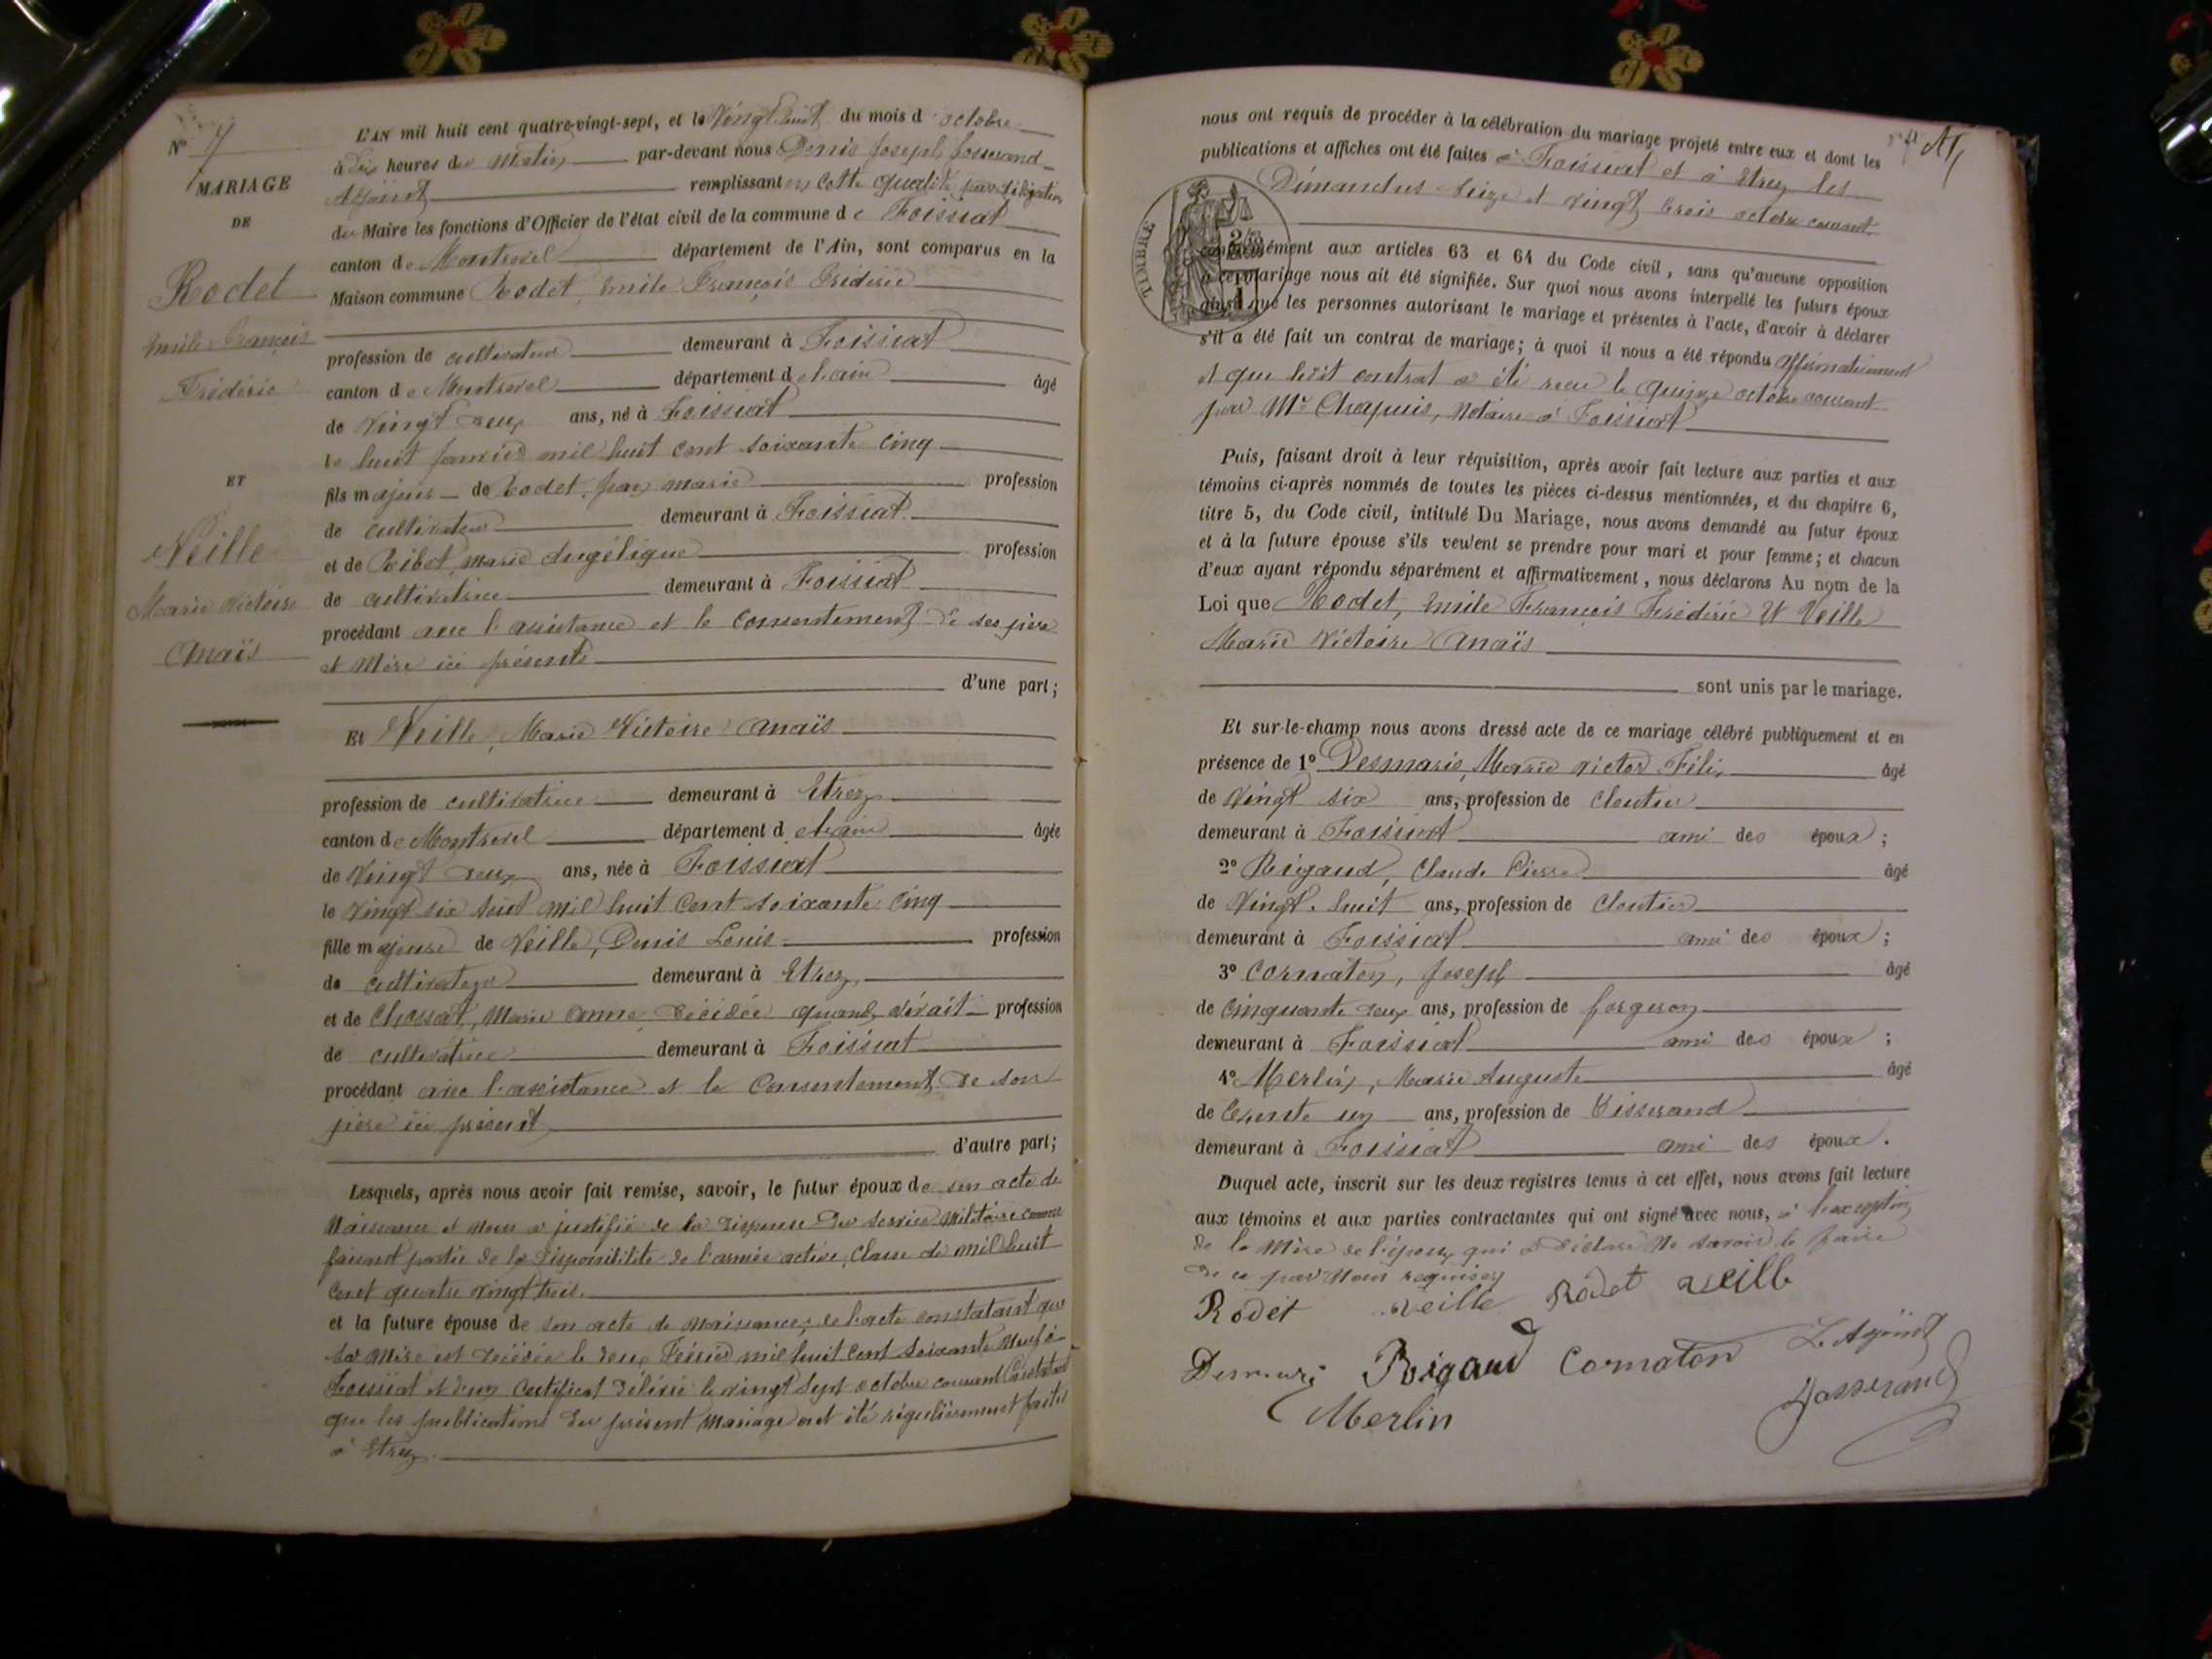 N° 7
MARIAGE
DE
Rodet
Emile François
Frédéric
ET
Veille
Marie Victoire
Anaïs
L'AN mil huit cent quatre-vingt-sept, et le Vingt huit du mois d'octobre
à dix heures du Matin par-devant nous Denis Joseph Josserand
Adjoint remplissant en cette qualité par délégation
du Maire les fonctions d'Officier de l'état civil de la commune de Foissiat
canton de Montrevel département de l'Ain, sont comparus en la
Maison commune Rodet, Emile François Frédéric
profession de cultivateur demeurant à Foissiat
canton de Montrevel département de l'ain âgé
de Vingt deux ans, né à Foissiat
le huit janvier mil huit cent soixante cinq
fils majeur de Rodet, jean marie profession
de cultivateur demeurant à Foissiat
et de Ribet, marie Angélique profession
de cultivatrice demeurant à Foissiat
procédant avec l'assistance et le Consentement de ses père
et Mère ici présents
d'une part;
Et Veille, Marie Victoire Anaïs
profession de cultivatrice demeurant à Etrez
canton de Montrevel département de l'ain âgée
de Vingt deux ans, née à Foissiat
le Vingt six Août mil huit Cent soixante Cinq
fille majeure de Veille, Denis Louis profession
de cultivateur demeurant à Etrez
et de Chossat, Marie Anne décédée quand vivait profession
de cultivatrice demeurant à Foissiat
procédant avec l'assistance et le Consentement de son
père ici présent
d'autre part;
Lesquels, après nous avoir fait remise, savoir, le futur époux de son acte de
Naissance et nous a justifié de la dispense du service Militaire comme
faisant partie de la disponibilité de l'armée active, Classe de mil huit
Cent quatre vingt trois.
et la future épouse de son acte de Naissance, de l'acte constatant que
sa Mère est décédée le deux Février mil huit Cent Soixante Neuf à
Foissiat et d'un Certificat délivré le vingt sept octobre courant Constatant
que les publications du présent Mariage ont été régulièrement faites
à Etrez.
nous ont requis de procéder à la célébration du mariage projeté entre eux et dont les
publications et affiches ont été faites à Foissiat et à Etrez les
Dimanches Seize et vingt trois octobre courant.
TIMBRE
conformément aux articles 63 et 64 du Code civil, sans qu'aucune opposition
à ce mariage nous ait été signifiée. Sur quoi nous avons interpellé les futurs époux
ainsi que les personnes autorisant le mariage et présentes à l'acte, d'avoir à déclarer
s'il a été fait un contrat de mariage; à quoi il nous a été répondu affirmativement
et que ledit contrat a été reçu le quinze octobre courant
par Me Chapuis, Notaire à Foissiat
Puis, faisant droit à leur réquisition, après avoir fait lecture aux parties et aux
témoins ci-après nommés de toutes les pièces ci-dessus mentionnées, et du chapitre 6,
titre 5, du Code civil, intitulé Du Mariage, nous avons demandé au futur époux
et à la future épouse s'ils veulent se prendre pour mari et pour femme; et chacun
d'eux ayant répondu séparément et affirmativement, nous déclarons Au nom de la
Loi que Rodet, Emile François Frédéric Et Veille
Marie Victoire Anaïs
sont unis par le mariage.
Et sur-le-champ nous avons dressé acte de ce mariage célébré publiquement et en
présence de 1° Desmaris, Marie Victor Félix âgé
de Vingt six ans, profession de Cloutier
demeurant à Foissiat ami des époux;
2° Rigaud, Claude Pierre âgé
de Vingt huit ans, profession de Cloutier
demeurant à Foissiat ami des époux;
3° Cornaton, Joseph âgé
de Cinquante deux ans, profession de forgeron
demeurant à Foissiat ami des époux;
4° Merlin, Marie Auguste âgé
de trente un ans, profession de tisserand
demeurant à Foissiat ami des époux.
Duquel acte, inscrit sur les deux registres tenus à cet effet, nous avons fait lecture
aux témoins et aux parties contractantes qui ont signé avec nous, à l'exception
de la Mère de l'époux qui a déclaré ne savoir le faire
de ce par Nous requise
Rodet Veille Rodet Veille
Rigaud Cornaton L'Adjoint
Merlin Josserand